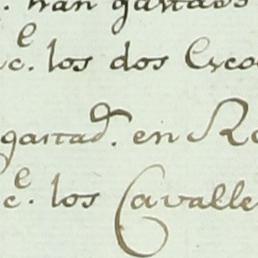 . han gastado
c.e los dos Esco
gastad.o en Re
c.e los Cavalle